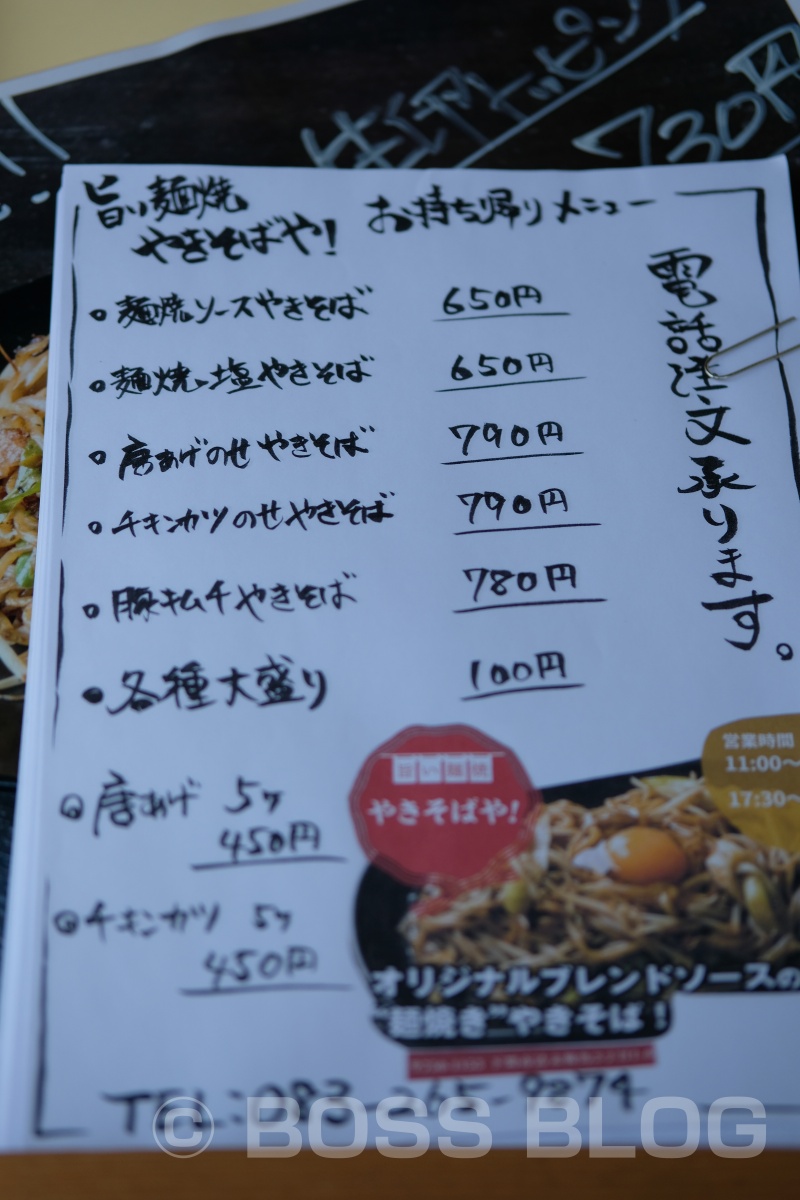 730円
旨い麺焼
やきそばや!
お持ち帰りメニュー
電話注文承ります。
麺焼ソースやきそば 650円
麺焼塩やきそば 650円
唐あげのせやきそば 790円
チキンカツのせやきそば 790円
豚キムチやきそば 780円
各種大盛り 100円
唐あげ 5ヶ
450円
チキンカツ 5ヶ
450円
旨い麺焼
やきそばや!
営業時間
11:00〜
17:30〜
オリジナルブレンドソースの
"麺焼き"やきそば!
TEL:083-265-9274
© BOSS BLOG